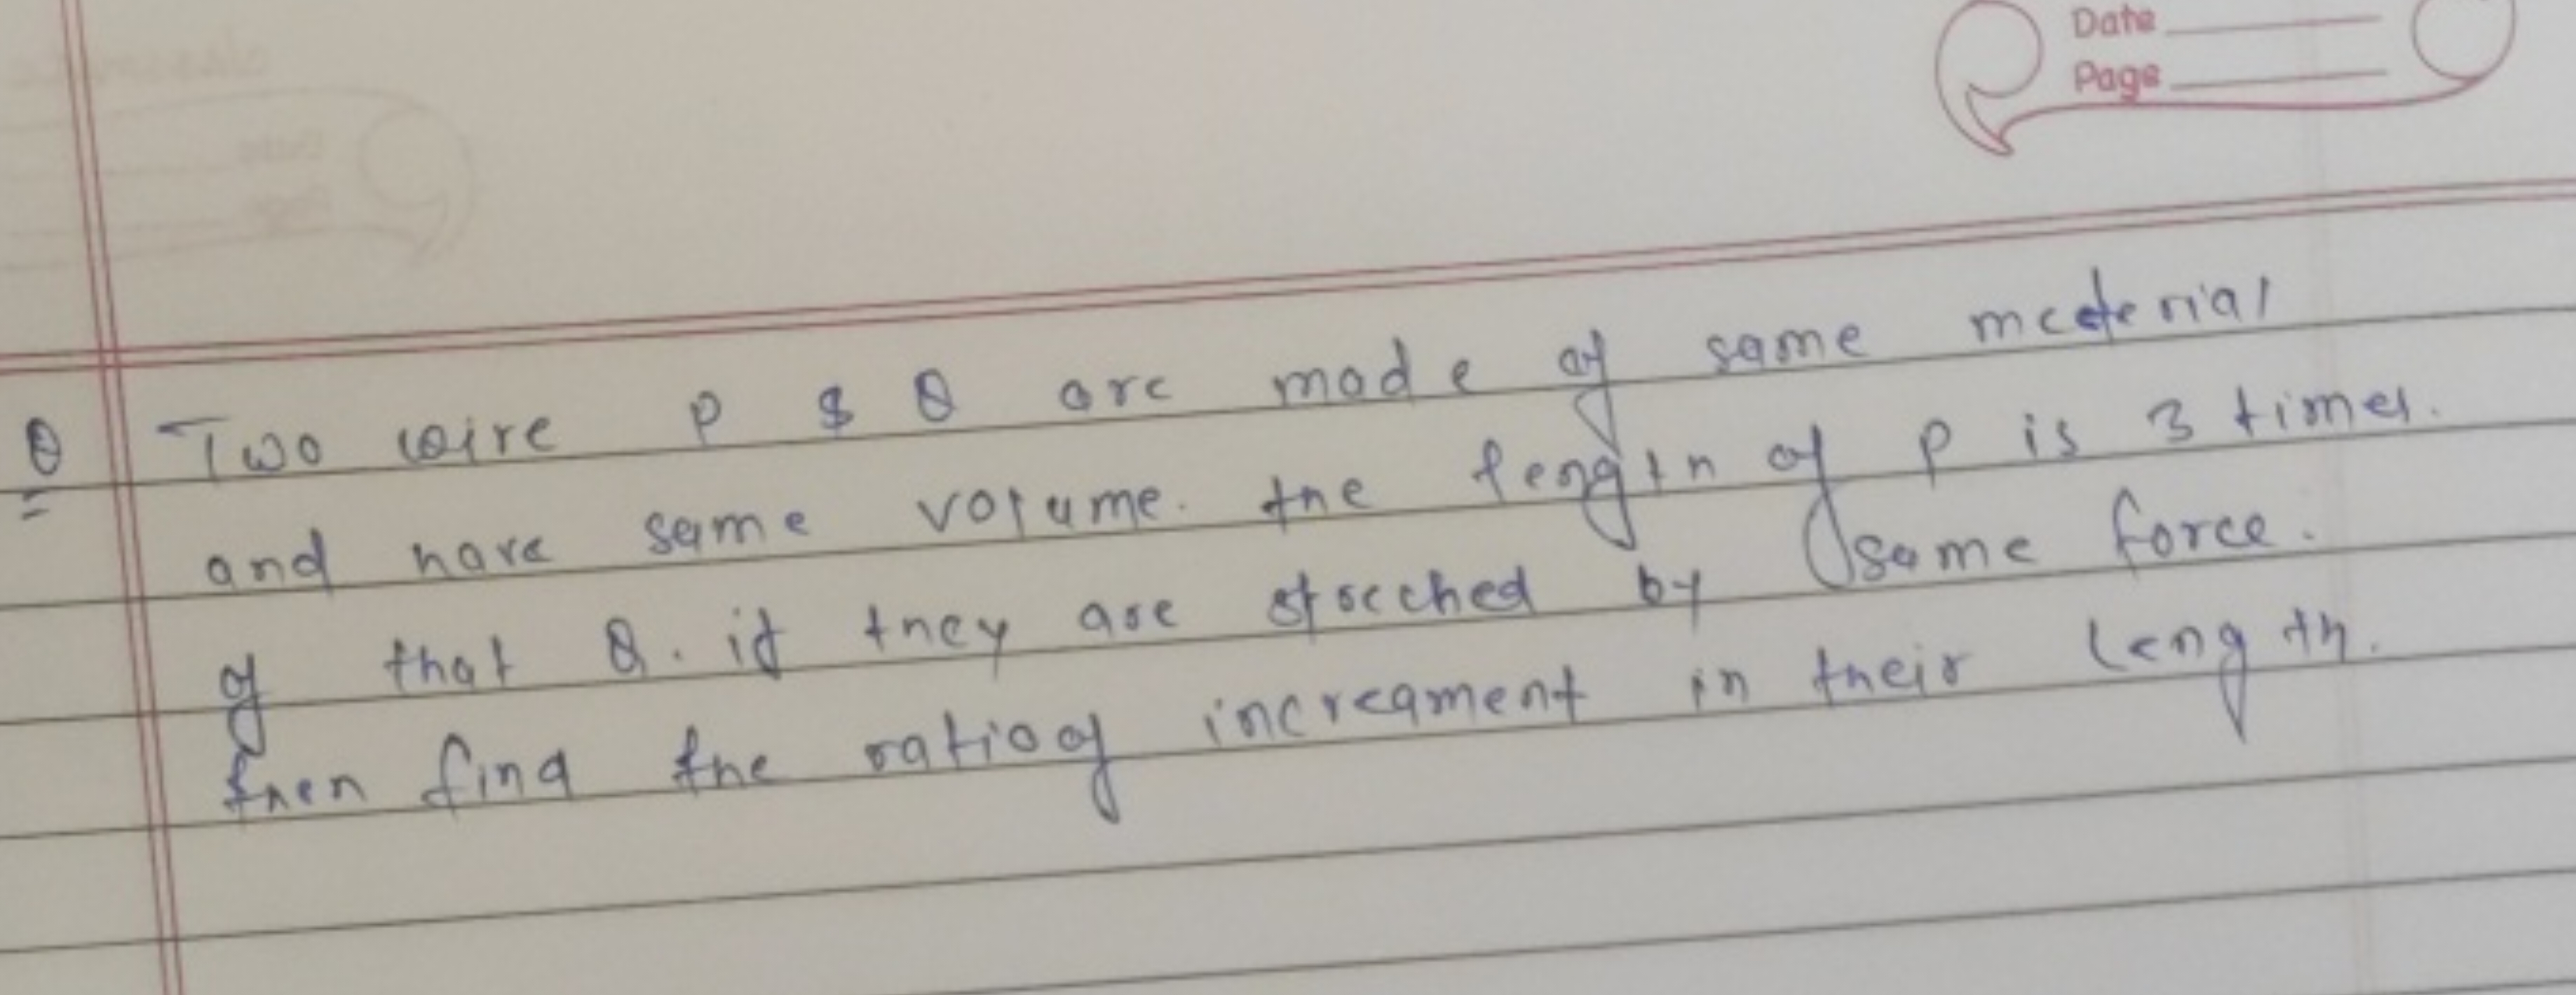 Date
Page
Q Two wire P & Q are made of same material
and have same volume. the length of P is 3 times.
of that Q. if they are streched by same force.
then find the ratio of increament in their length.